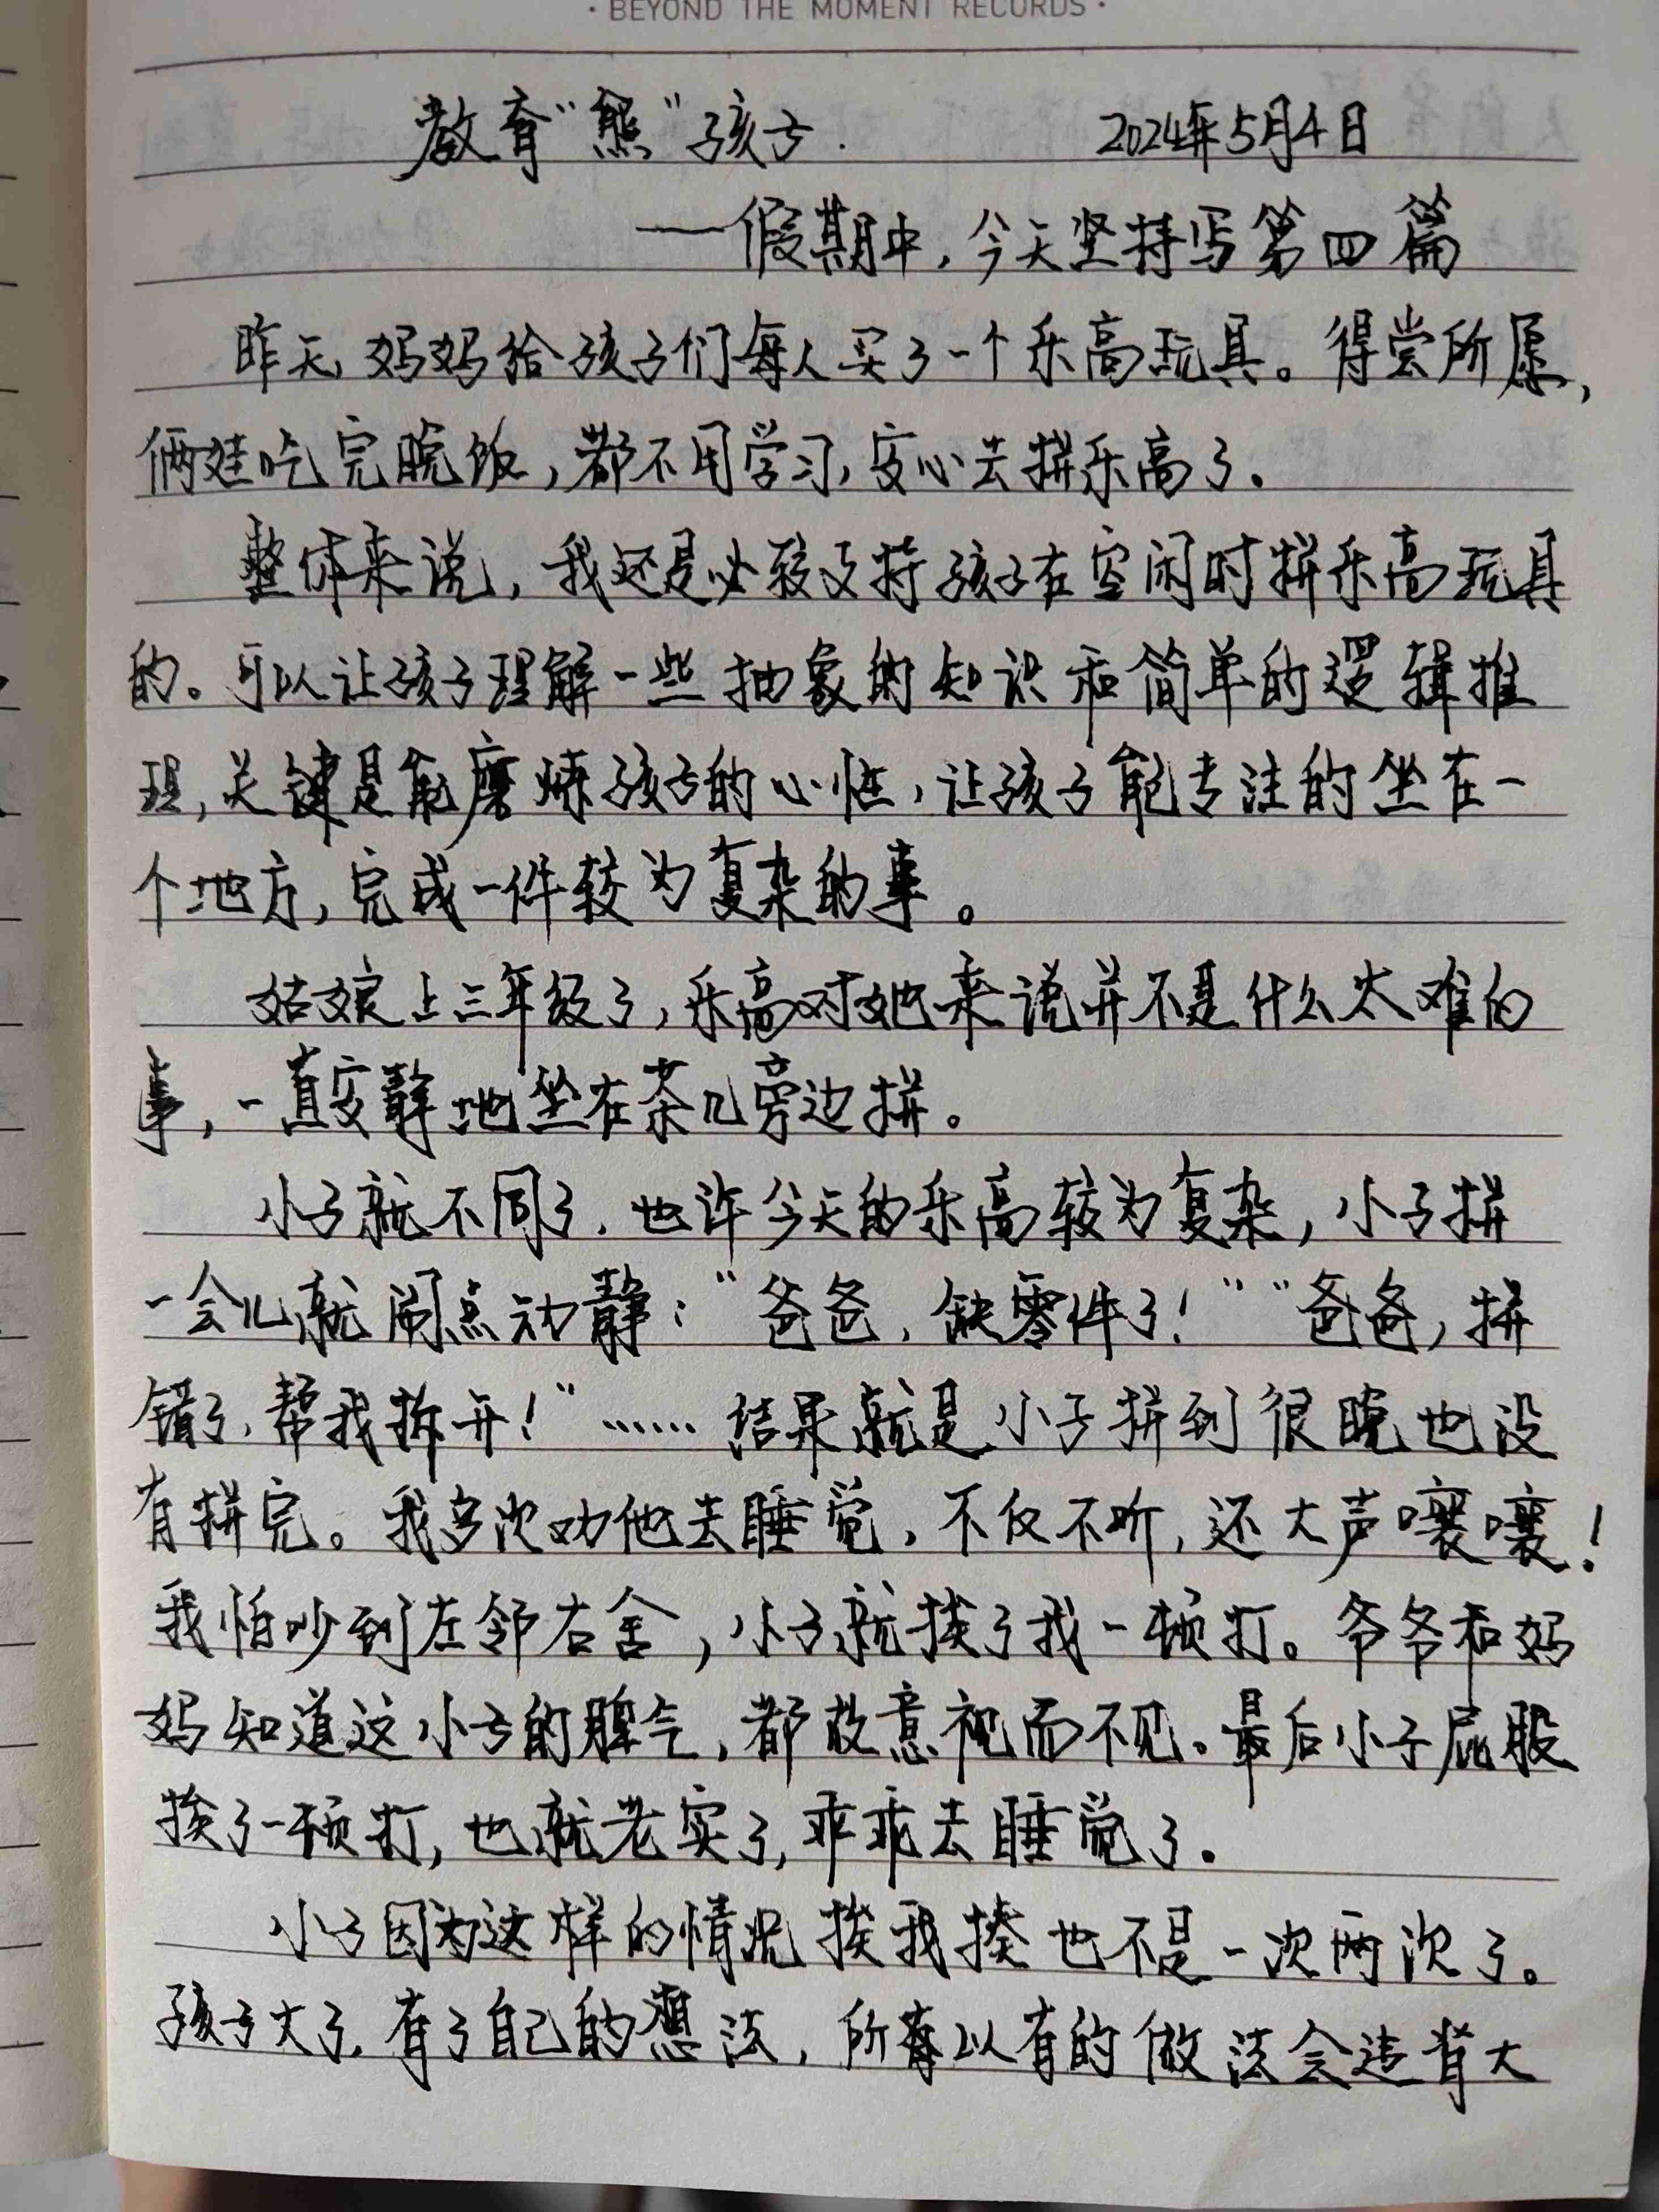 · BEYOND THE MOMENT RECORDS ·
教育“熊”孩子. 2024年5月4日
——假期中,今天坚持写第四篇
昨天,妈妈给孩子们每人买了一个乐高玩具。得尝所愿,
俩娃吃完晚饭,都不用学习,安心去拼乐高了。
整体来说,我还是比较支持孩子在空闲时拼乐高玩具
的。可以让孩子理解一些抽象的知识和简单的逻辑推
理,关键是能磨炼孩子的心性,让孩子能专注的坐在一
个地方,完成一件较为复杂的事。
姑娘上三年级了,乐高对她来说并不是什么太难的
事,一直安静地坐在茶几旁边拼。
小子就不同了.也许今天的乐高较为复杂,小子拼
一会儿就闹点动静:“爸爸,缺零件了!”“爸爸,拼
错了,帮我拆开!”……结果就是小子拼到很晚也没
有拼完。我多次劝他去睡觉,不仅不听,还大声嚷嚷!
我怕吵到左邻右舍,小子就挨了我一顿打。爷爷和妈
妈知道这小子的脾气,都故意视而不见。最后小子屁股
挨了一顿打,也就老实了,乖乖去睡觉了。
小子因为这样的情况挨我揍也不是一次两次了。
孩子大了,有了自己的想法,所以有的做法会违背大